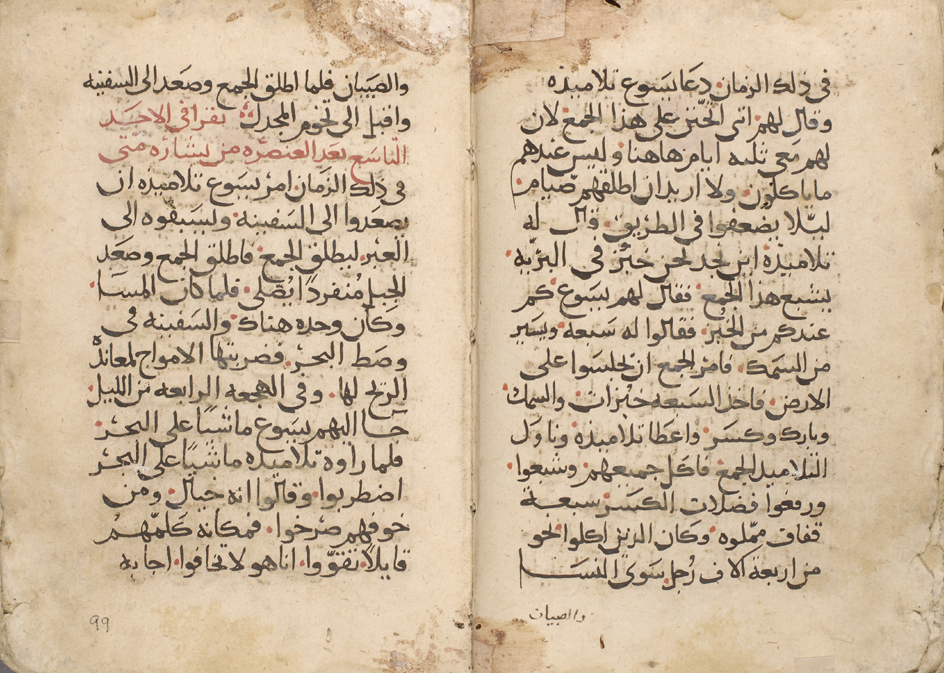 في ذلك الزمان دعا يسوع تلاميذه
وقال لهم اني اتحنن على هذا الجمع لان
لهم معي ثلثه ايام هاهنا وليس عندهم
ما ياكلون ولا اريد ان اطلقهم صيام
ليلا يضعفوا في الطريق قال له
تلاميذه اين نجد نحن خبز في البريه
يشبع هذا الجمع فقال لهم يسوع كم
عندكم من الخبز فقالوا له سبعه ويسير
من السمك فامر الجمع ان يجلسوا على
الارض فاخذ السبعه خبزات والسمك
وبارك وكسر واعطا تلاميذه وناول
التلاميذ الجمع فاكل جميعهم وشبعوا
ورفعوا فضلات الكسر سبعة
قفاف مملوه وكان الذين اكلوا نحو
من اربعة الاف رجل سوى النسا
والصبيان
والصبيان فلما اطلق الجمع وصعد الى السفينه
واقبل الى تخوم المجدل يقرا في الاحد
التاسع بعد العنصره من بشاره متى
في ذلك الزمان امر يسوع تلاميذه ان
يصعدوا الى السفينه ويسبقوه الى
العبر ليطلق الجمع فاطلق الجمع وصعد
للجبل منفردا يصلي فلما كان المسا
وكان وحده هناك والسفينه في
وسط البحر فضربتها الامواج لمعاندة
الريح لها وفي الهجعه الرابعه من الليل
جا اليهم يسوع ماشيا على البحر
فلما راوه تلاميذه ماشيا على البحر
اضطربوا وقالوا انه خيال ومن
خوفهم صرخوا فمكانه كلمهم
قايلا تقووا انا هو لا تخافوا اجابه
99